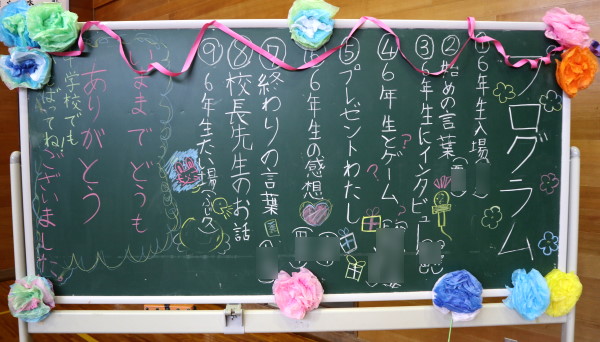 プログラム
①6年生入場
②始めの言葉
③6年生にインタビュー
④6年生とゲーム
⑤プレゼントわたし
⑥6年生の感想
⑦終わりの言葉
⑧校長先生のお話
⑨6年生たい場
いままでどうも
ありがとう
ございました。
学校でも
ばってね!